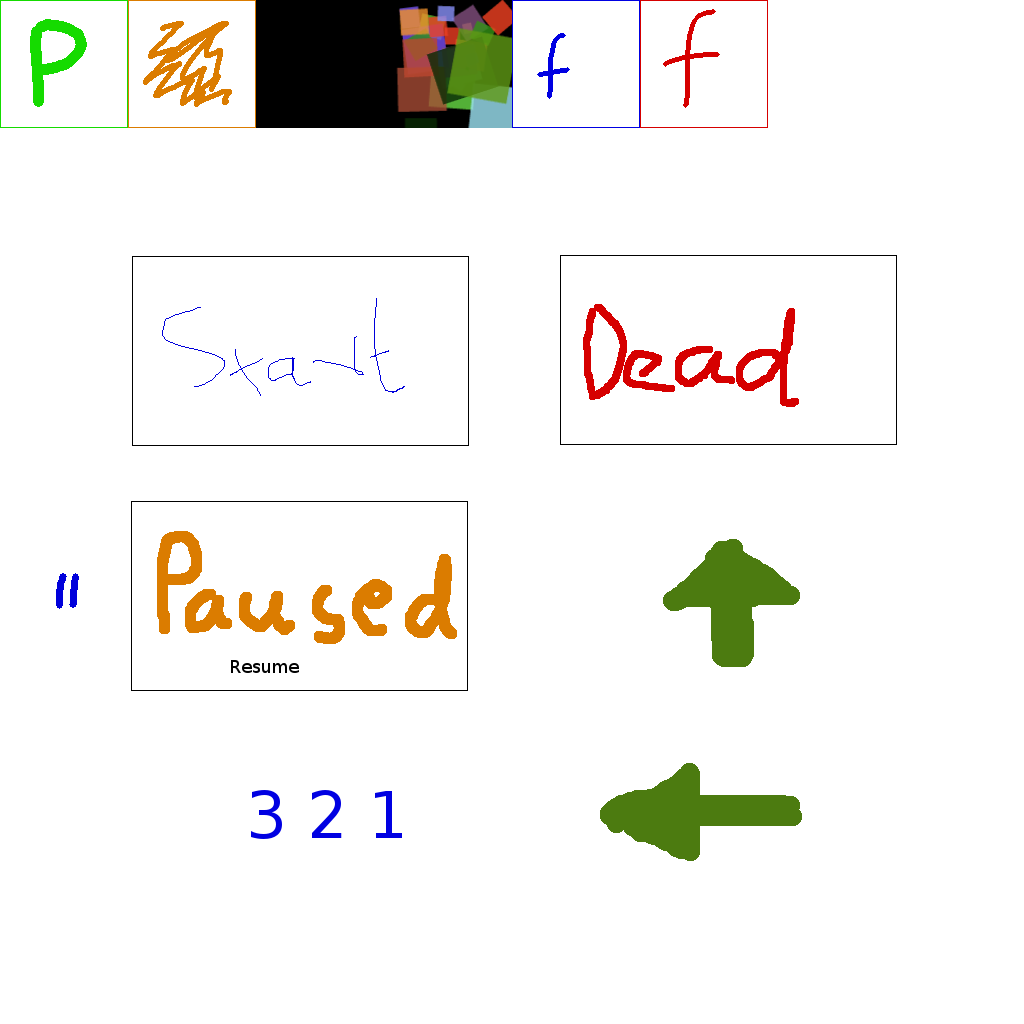 P f f
Start Dead
Paused
Resume
3 2 1